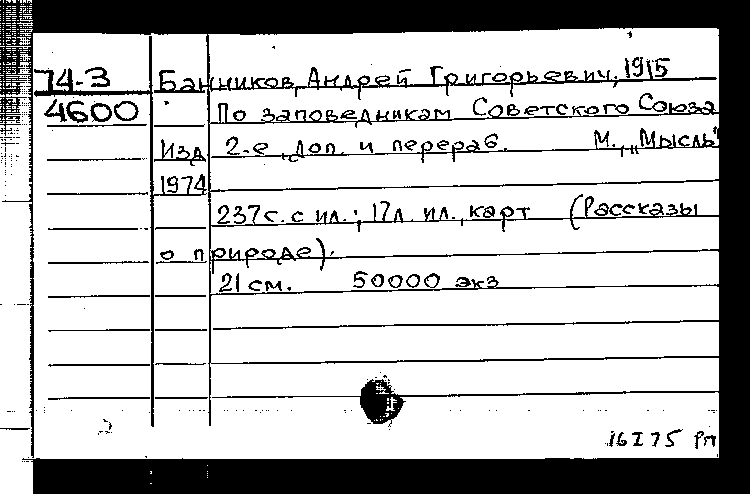 74-3 Банников, Андрей Григорьевич, 1915
4600 По заповедникам Советского Союза
Изд 2-е, доп. и перераб. М., „Мысль"
1974
237 с. с ил.; 17 л. ил., карт (Рассказы
о природе).
21 см. 50000 экз
16 I 75 Рп